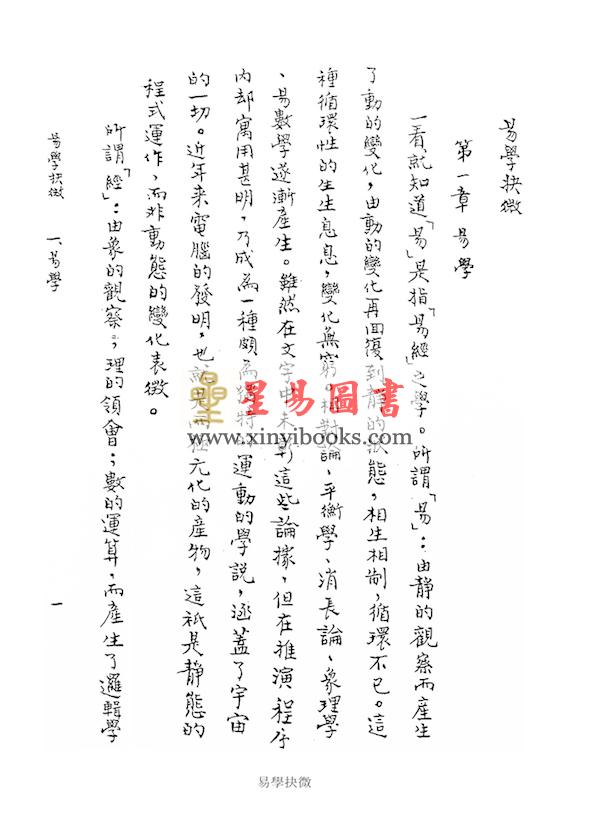 易學抉微
第一章 易學
一看就知道「易」是指「易經」之學。所謂「易」：由靜的觀察而產生
了動的變化，由動的變化再回復到靜的狀態，相生相制，循環不已。這
種循環性的生生息息，變化無窮。相對論、平衡學、消長論、象理學
、易數學遂漸產生。雖然在文字中未彰這些論據，但在推演程序
內却寓用甚明，乃成為一種頗為獨特的運動的學說，涵蓋了宇宙
的一切。近年来電腦的發明，也就是兩極元化的產物，這祇是靜態的
程式運作，而非動態的變化表徵。
所謂「經」：由象的觀察；理的領會；數的運算，而產生了邏輯學
易學抉微 一、易學 一
星易圖書
www.xinyibooks.com
易學抉微